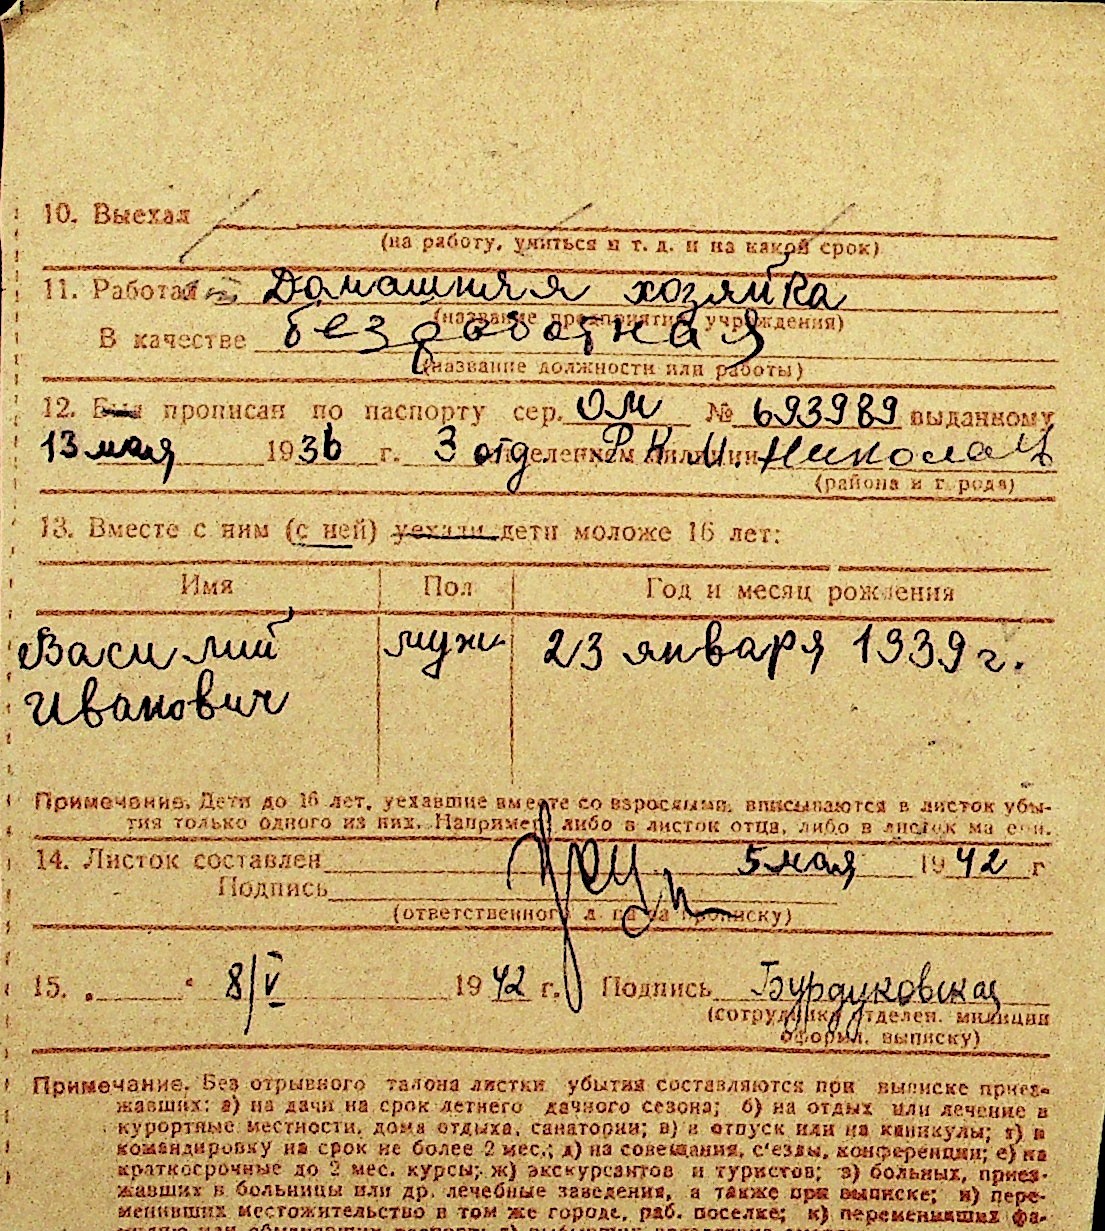 10. Выехал
(на работу, учиться и т. д. и на какой срок)
11. Работал Домашняя хозяйка
(название предприятия, учреждения)
В качестве безработная
(название должности или работы)
12. Был прописан по паспорту сер. ОМ № 693989 выданному
13 мая 1936 г. 3 отд. отделением милиции Р.К.М. Николаев
(района и города)
13. Вместе с ним (с ней) уехали дети моложе 16 лет:
Имя Пол Год и месяц рождения
Василий муж 23 января 1939 г.
Иванович
Примечание. Дети до 16 лет, уехавшие вместе со взрослыми, вписываются в листок убы-
тия только одного из них. Например, либо в листок отца, либо в листок матери.
14. Листок составлен 5 мая 1942 г
Подпись
(ответственного л. за прописку)
15. 8/V 1942 г. Подпись Бурдуковская
(сотрудника отделен. милиции
оформ. выписку)
Примечание. Без отрывного талона листки убытия составляются при выписке приез-
жавших: а) на дачи на срок летнего дачного сезона; б) на отдых или лечение в
курортные местности, дома отдыха, санатории; в) в отпуск или на каникулы; г) в
командировку на срок не более 2 мес.; д) на совещания, с'езды, конференции; е) на
краткосрочные до 2 мес. курсы; ж) экскурсантов и туристов; з) больных, приез-
жавших в больницы или др. лечебные заведения, а также при выписке; и) пере-
менивших местожительство в том же городе, раб. поселке; к) переменивших фа-